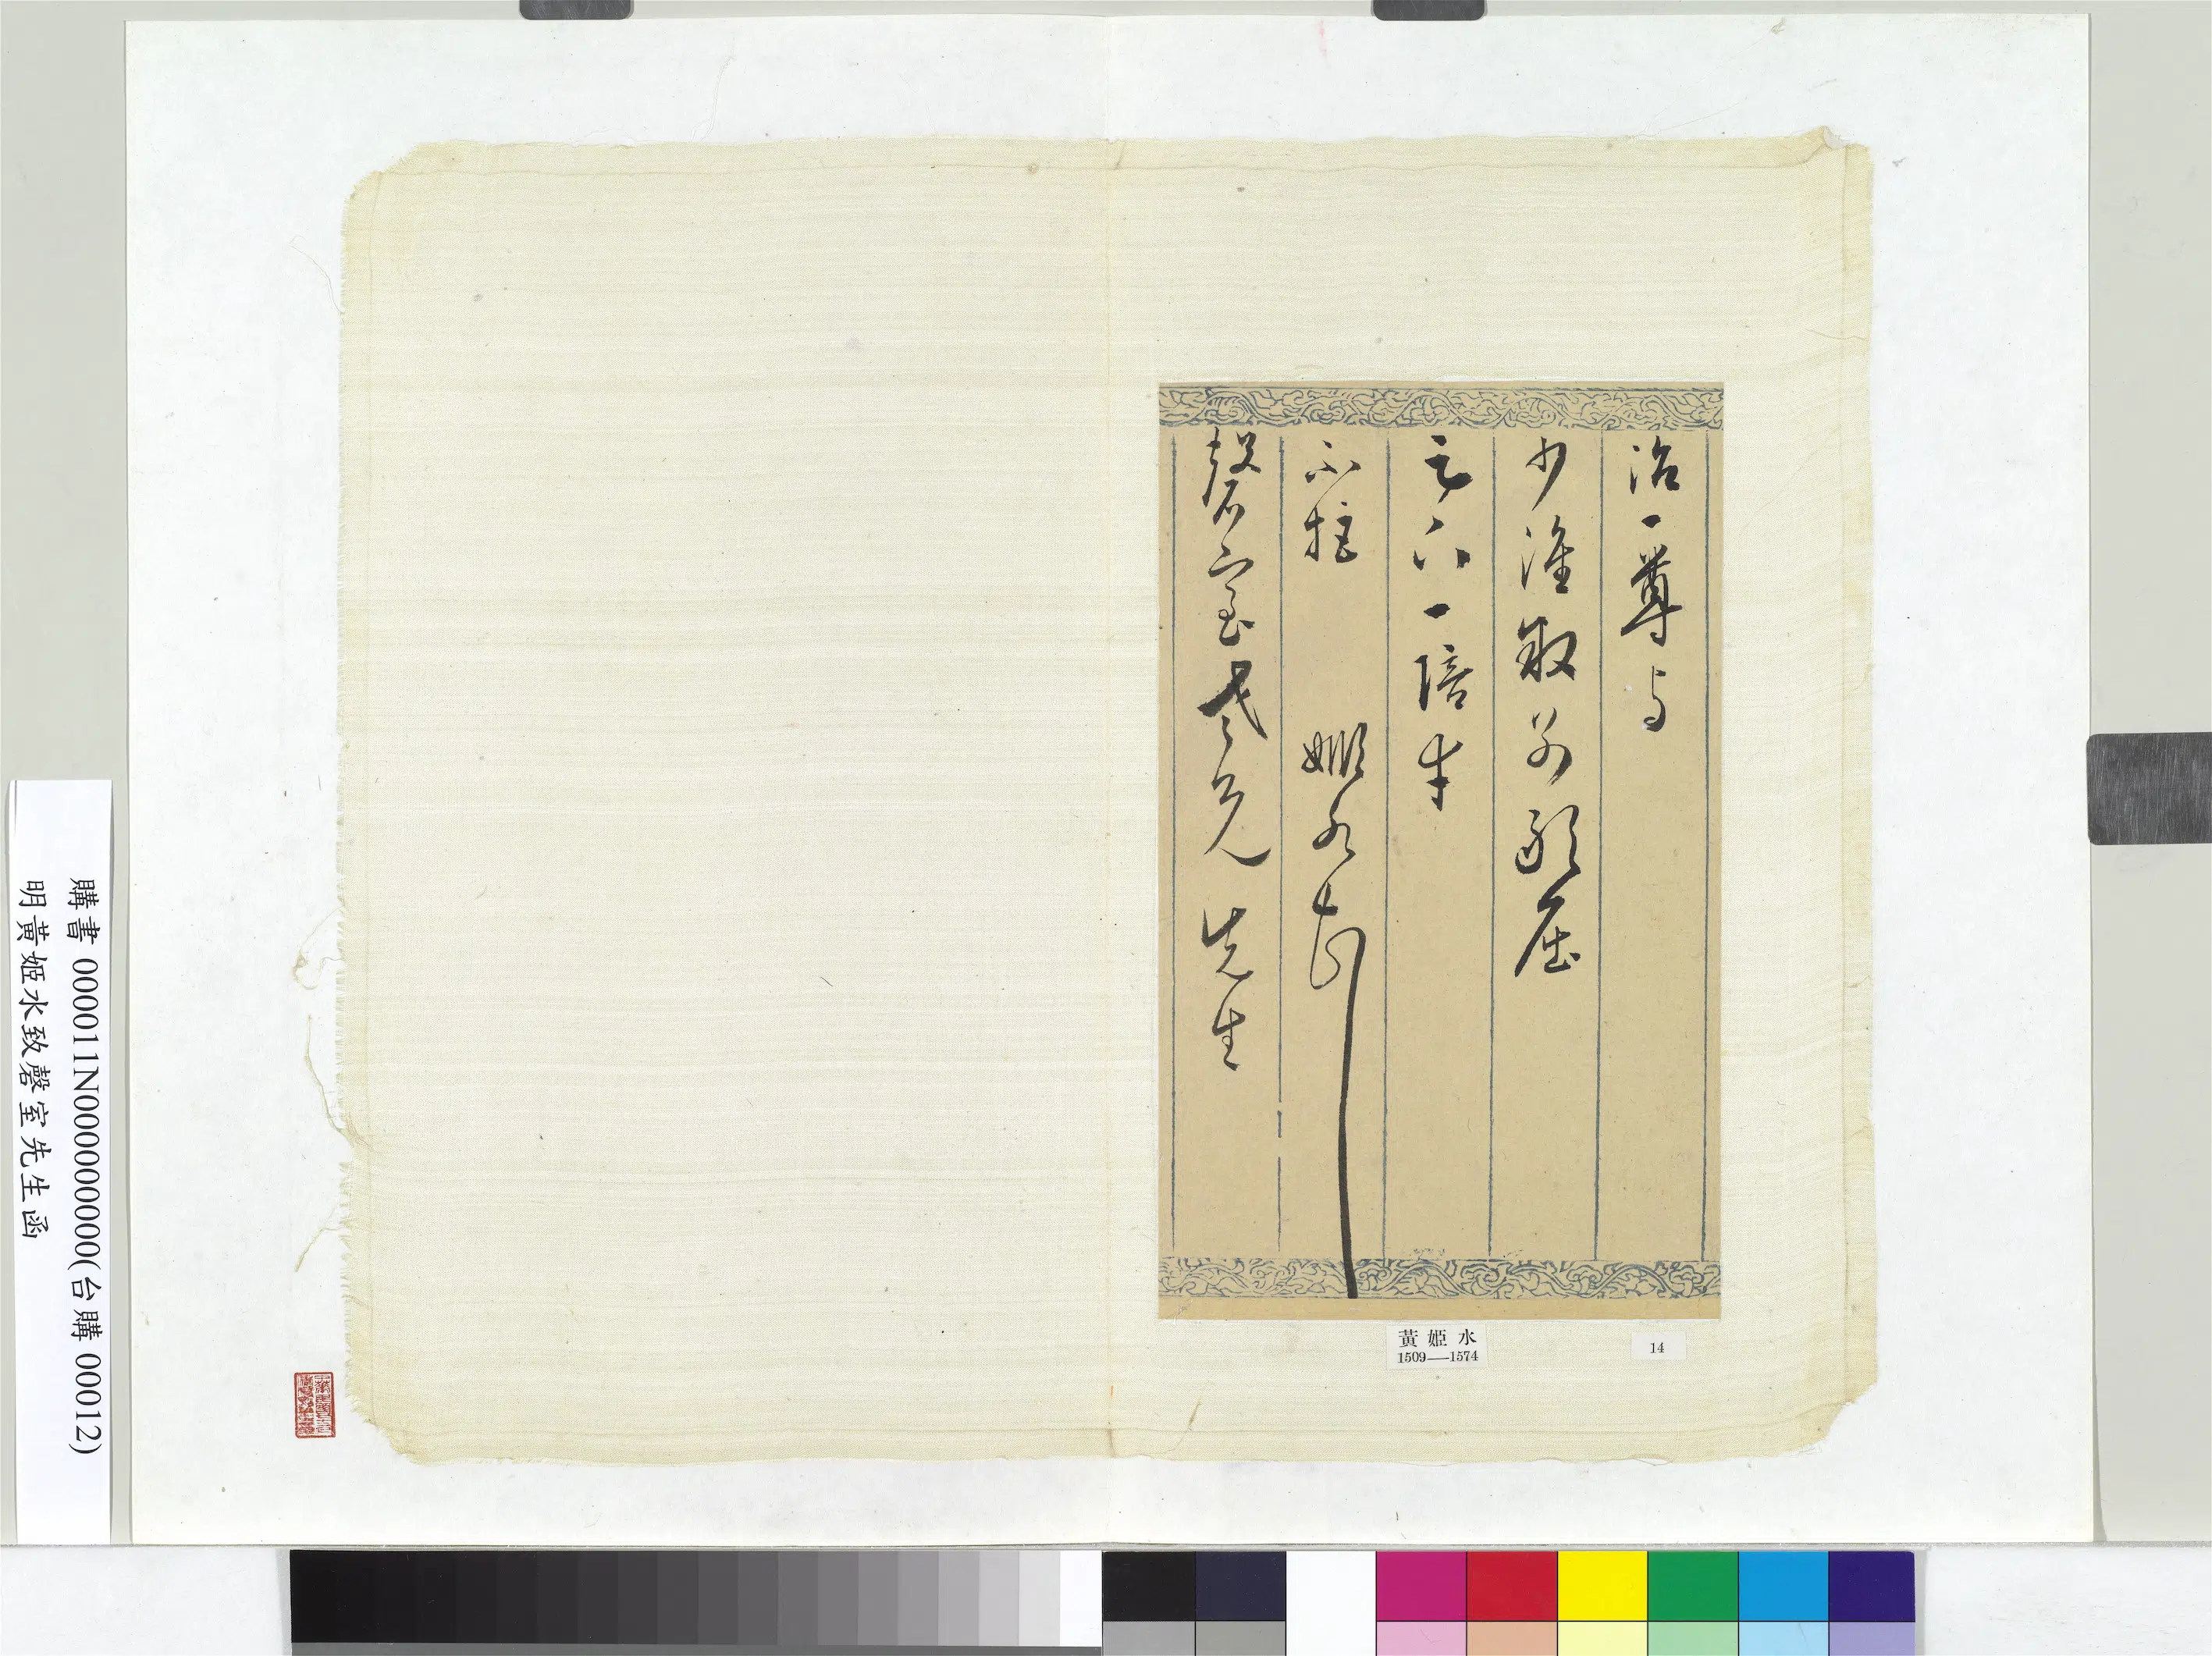 治一尊与
少淮敘別敢屈
元六一陪幸
不拒 姬水頓
磬室老兄 先生
黃姬水
1509—1574
14
購書 000011N000000000(台購 00012)
明黃姬水致磬室先生函